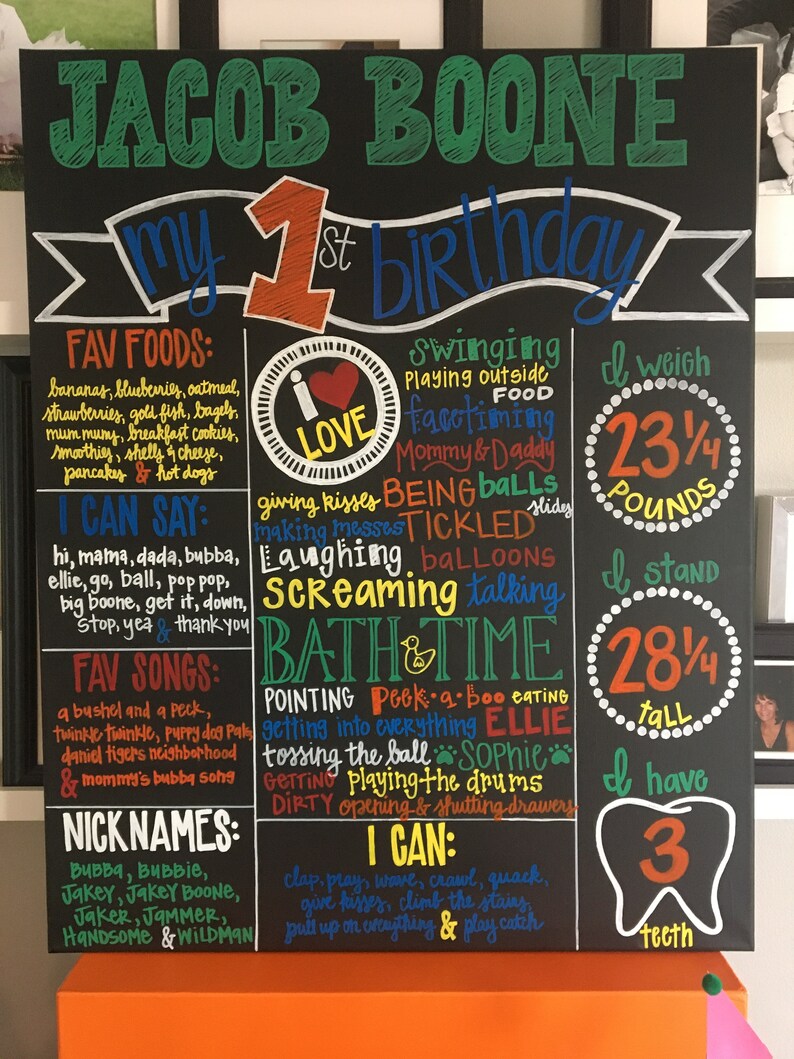 JACOB BOONE
my 1st birthday
FAV FOODS:
bananas, blueberries, oatmeal,
strawberries, gold fish, bagels,
mum mums, breakfast cookies,
smoothies, shells & cheese,
pancakes & hot dogs
I CAN SAY:
hi, mama, dada, bubba,
ellie, go, ball, pop pop,
big boone, get it, down,
stop, yea & thank you
FAV SONGS:
a bushel and a peck,
twinkle twinkle, puppy dog pals,
daniel tigers neighborhood
& mommy's bubba song
NICKNAMES:
Bubba, Bubbie,
Jakey, Jakey Boone,
Jaker, Jammer,
Handsome & Wildman
i LOVE
swinging
playing outside
FOOD
facetiming
Mommy & Daddy
giving kisses BEING balls
slides
making messes TICKLED
Laughing balloons
screaming talking
BATH TIME
POINTING peek-a-boo eating
getting into everything ELLIE
tossing the ball Sophie
GETTING playing the drums
DIRTY opening & shutting drawers
I CAN:
clap, pray, wave, crawl, quack,
give kisses, climb the stairs,
pull up on everything & play catch
I weigh
23 1/4
POUNDS
I stand
28 1/4
tall
I have
3
teeth